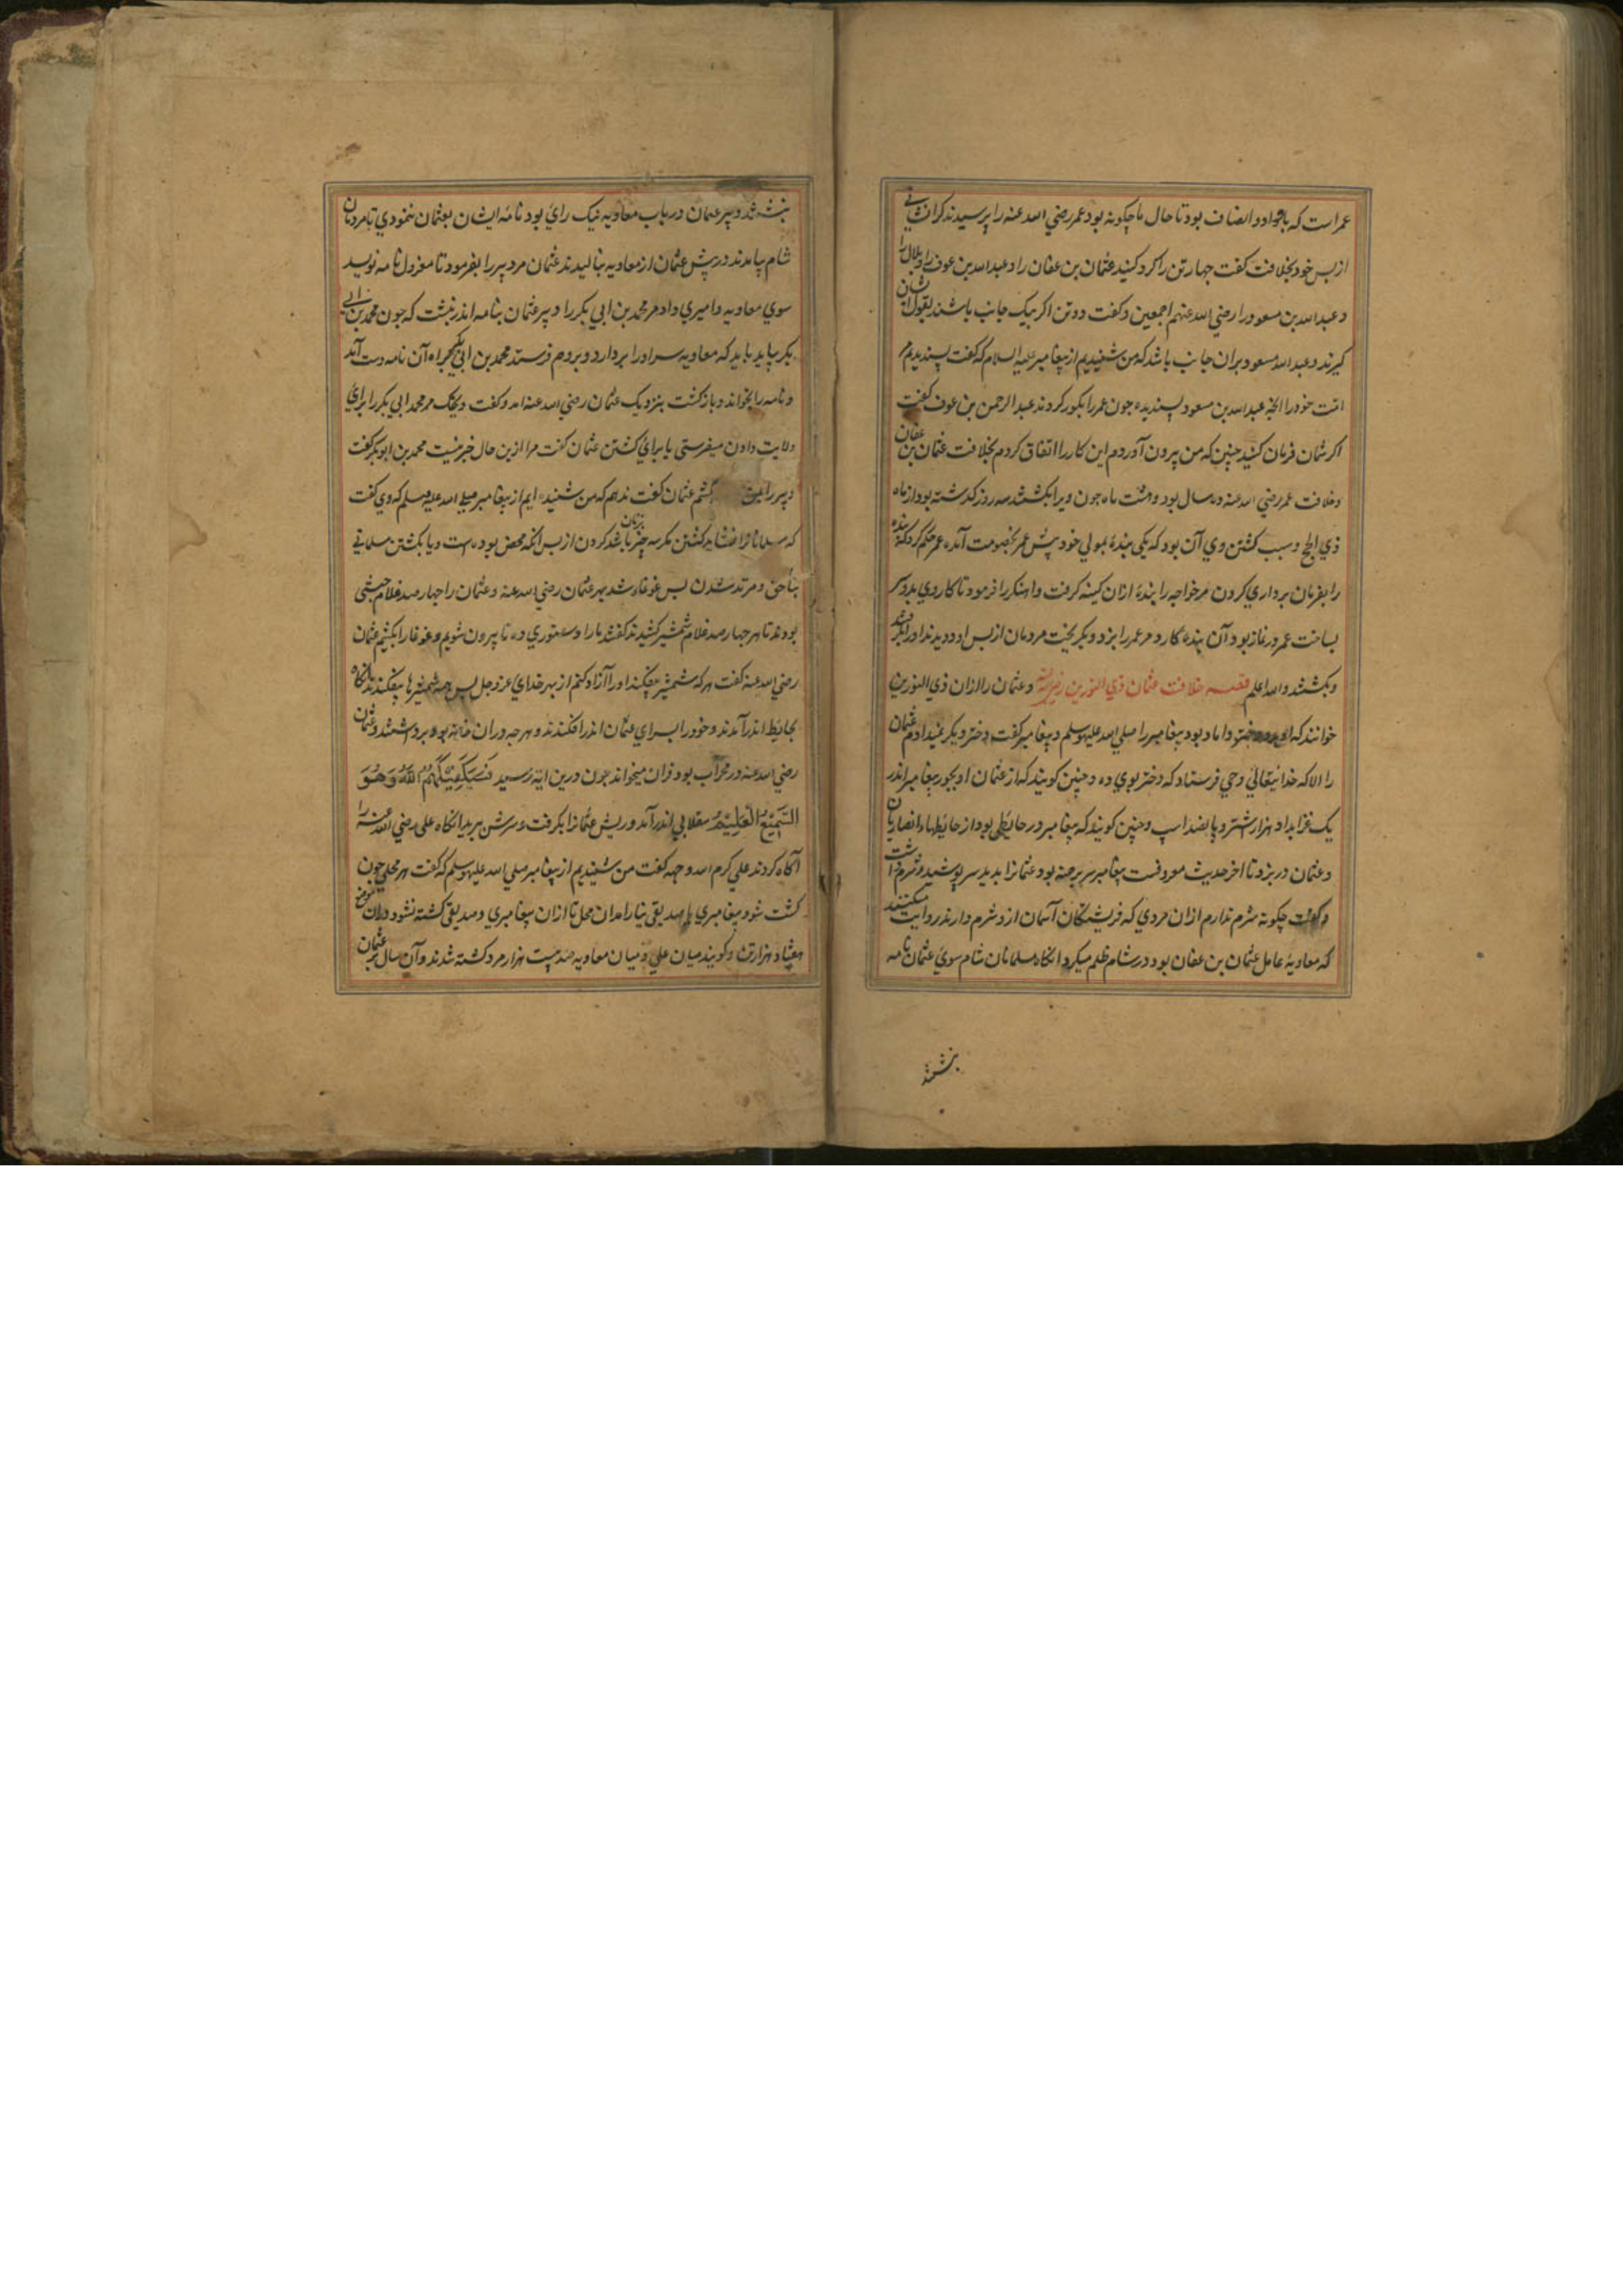 عمر است که با داد و انصاف بود تا حال ما چکونه بود عمر رضي الله عنه را پرسیدند کرا نشاني
از بس خود بخلافت کفت چهار تن را کرد کنید عثمان بن عفان را و عبدالله بن عوف را و بلال را
و عبدالله بن مسعود را رضي الله عنهم اجمعین و کفت دو تن اکر بیک جانب باشند بقول ایشان
کیرند و عبدالله مسعود بران جانب باشد که من شنیدیم از پیغامبر علیه السلام که کفت پسندیدم
امت خود را انچه عبدالله بن مسعود پسندیده جون عمر را بکور کردند عبدالرحمن بن عوف کفت
اکر شمان فرمان کنید چنین که من پیرون آوردم این کار را اتفاق کردم بخلافت عثمان بن عفان
و خلافت عمر رضي الله عنه ده سال بود و هشت ماه جون ویرا بکشتند سه روز کذشته بود از ماه
ذي الحج و سبب کشتن وي آن بود که یکي بندۀ بمولي خود پیش عمر بخصومت آمده عمر حکم کرد که بنده
را بفرمان برداري کردن مر خواجه را بنده ازان کینه کرفت و اهنکر را فرمود تا کاردي بدو سر
بساخت عمر در نماز بود آن بنده کارد مر عمر را بزد و بکریخت مردمان از بس او دویدند او را بکرفتند
و بکشتند والله اعلم قصه خلافت عثمان ذي النورین رضي الله عنه و عثمان را ازان ذي النورین
خوانند که دو دختر داماد بود پیغامبر را صلي الله علیه وسلم و پیغامبر کفت دختر دیکر نمیدادم عثمان
را الا که خدایتعالي وحي فرستاد که دختر بوي ده و چنین کویند که از عثمان او بجور پیغامبر اندر
یک غزا بداد هزار اشتر و پانصد اسپ و چنین کویند که پیغامبر در حایطي بود از حایطهاء انصاریان
و عثمان در بزد تا اخر حدیث معروفست پیغامبر سر برهنه بود عثمانرا بدید سر پوشید و شرم داشت
و کفت چکونه شرم ندارم ازان مردي که فریشتکان آسمان ازو شرم دارند روایت میکنند
که معاویه عامل عثمان بن عفان بود در شام ظلم میکرد انکاه مسلمانان شام سوي عثمان نامه
بنشتند
بنشتند و پیر عثمان در باب معاویه نیک راي بود نامه ایشان بعثمان ننمودي تا مردمان
شام پیامدند در پیش عثمان از معاویه بنالیدند عثمان مر دپیر را بفرمود تا معزول نامه نویسد
سوي معاویه و امیري داد مر محمد بن ابي بکر را دپیر عثمان بنامه اندر نبشت که جون محمد بن ابي
بکر بیاید باید که معاویه سر او را بردارد و بروم فرستد محمد بن ابي بکر براه آن نامه دست آمد
و نامه را بخواند و بازکشت بنزدیک عثمان رضي الله عنه امد و کفت ویحک مر محمد ابي بکر را براي
ولایت دادن میفرستي یا براي کشتن عثمان کفت مرا ازین حال خبر نیست محمد بن ابو بکر کفت
دپیر را کشتم عثمان کفت ندهم که من شنیده ایم از پیغامبر صلي الله علیه وسلم که وي کفت
که مسلمانانرا نشاید کشتن مکر سه چیز باشد کردن از بس انکه محصن بوده است و یا بکشتن مسلماني
بناحق و مرتد شدن بس غوغا رشد بهر عثمان رضي الله عنه و عثمان را چهار صد غلام حبشي
بودند تا هر چهار صد غلام شمشیر کشیدند کفتند ما را دستوري ده تا پیرون شویم و غوغا را بکشیم عثمان
رضي الله عنه کفت هر که شمشیر بیفکند او را آزاد کنم از بهر خداي عزوجل بس همه شمشیرها بیفکندند انکاه
بحایط اندر آمدند و خود را بسراي عثمان اندر افکندند و هر چه دران خانه بود برداشتند و عثمان
رضي الله عنه در محراب بود قران میخواند جون درین ایه رسید فَسَيَكْفِيكَهُمُ اللَّهُ وَهُوَ
السَّمِيعُ الْعَلِيمُ سقلابي اندر آمد و ریش عثمانرا بکرفت و سرش ببرید انکاه علي رضي الله عنه را
آکاه کردند علي کرم الله وجهه کفت من شنیدیم از پیغامبر صلي الله علیه وسلم که کفت هر محلي جون
کشت شود پیغامبري یا صدیقي بنیارامد ان محل تا ازان پیغامبري و صدیقي کشته نشود دران موضع
هفتاد هزار تن و کویند میان علي و میان معاویه صد بیست هزار مرد کشته شدند و آن سال بر عثمان